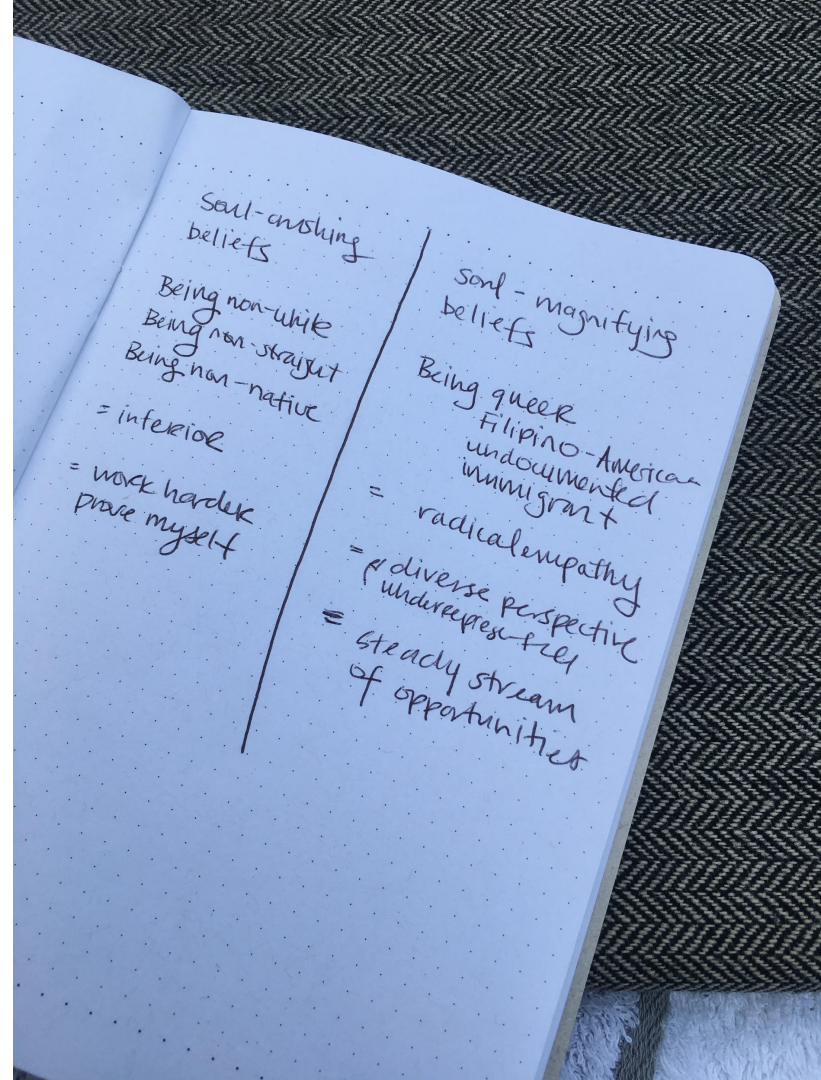 Soul-crushing
beliefs
Being non-white
Being non-straight
Being non-native
= inferior
= work harder
prove myself
soul-magnifying
beliefs
Being queer
Filipino-American
undocumented
immigrant
= radical empathy
= diverse perspective
underrepresented
= steady stream
of opportunities